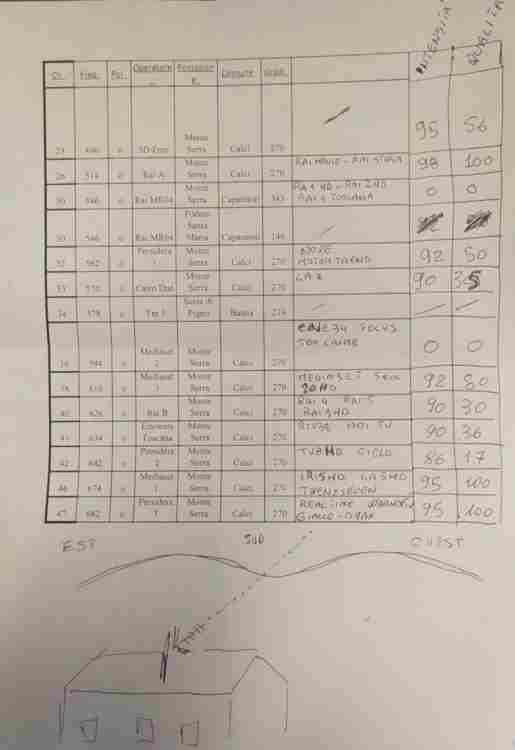 INTENSITÀ QUALITÀ
Ch. Freq. Pol. Operatore Postazione Comune Grad.
25 506 o 3D-Free Monte Serra Calci 270 95 56
26 514 o Rai A Monte Serra Calci 270 RAI MOVIE - RAI STORIA 98 100
30 546 o Rai MR04 Monte Serra Capannori 343 RAI 1 HD - RAI 2 HD RAI 3 TOSCANA 0 0
30 546 o Rai MR04 Podere Santa Maria Capannori 146
32 562 o Persidera 1 Monte Serra Calci 270 NOVE MOTOR TREND 92 50
33 570 o Cairo Due Monte Serra Calci 270 LA 7 90 35
34 578 o Serra di Pigino 218
36 594 o Mediaset 2 Monte Serra Calci 270 34 FOCUS TOP CRIME 0 0
38 610 o Mediaset 3 Monte Serra Calci 270 MEDIASET 20 HD 92 80
40 626 o Rai B Monte Serra Calci 270 RAI 4 RAI 5 RAI 3 HD 90 30
41 634 o Toscana Monte Serra Calci 270 NOI TV 90 36
42 642 o Persidera 2 Monte Serra Calci 270 TV8 HD CIELO 86 17
46 674 o Mediaset 1 Monte Serra Calci 270 IRIS HD LA5 HD TWENTYSEVEN 95 100
47 682 o Persidera 3 Monte Serra Calci 270 REAL TIME GIALLO - DMAX 95 100
EST SUD OVEST